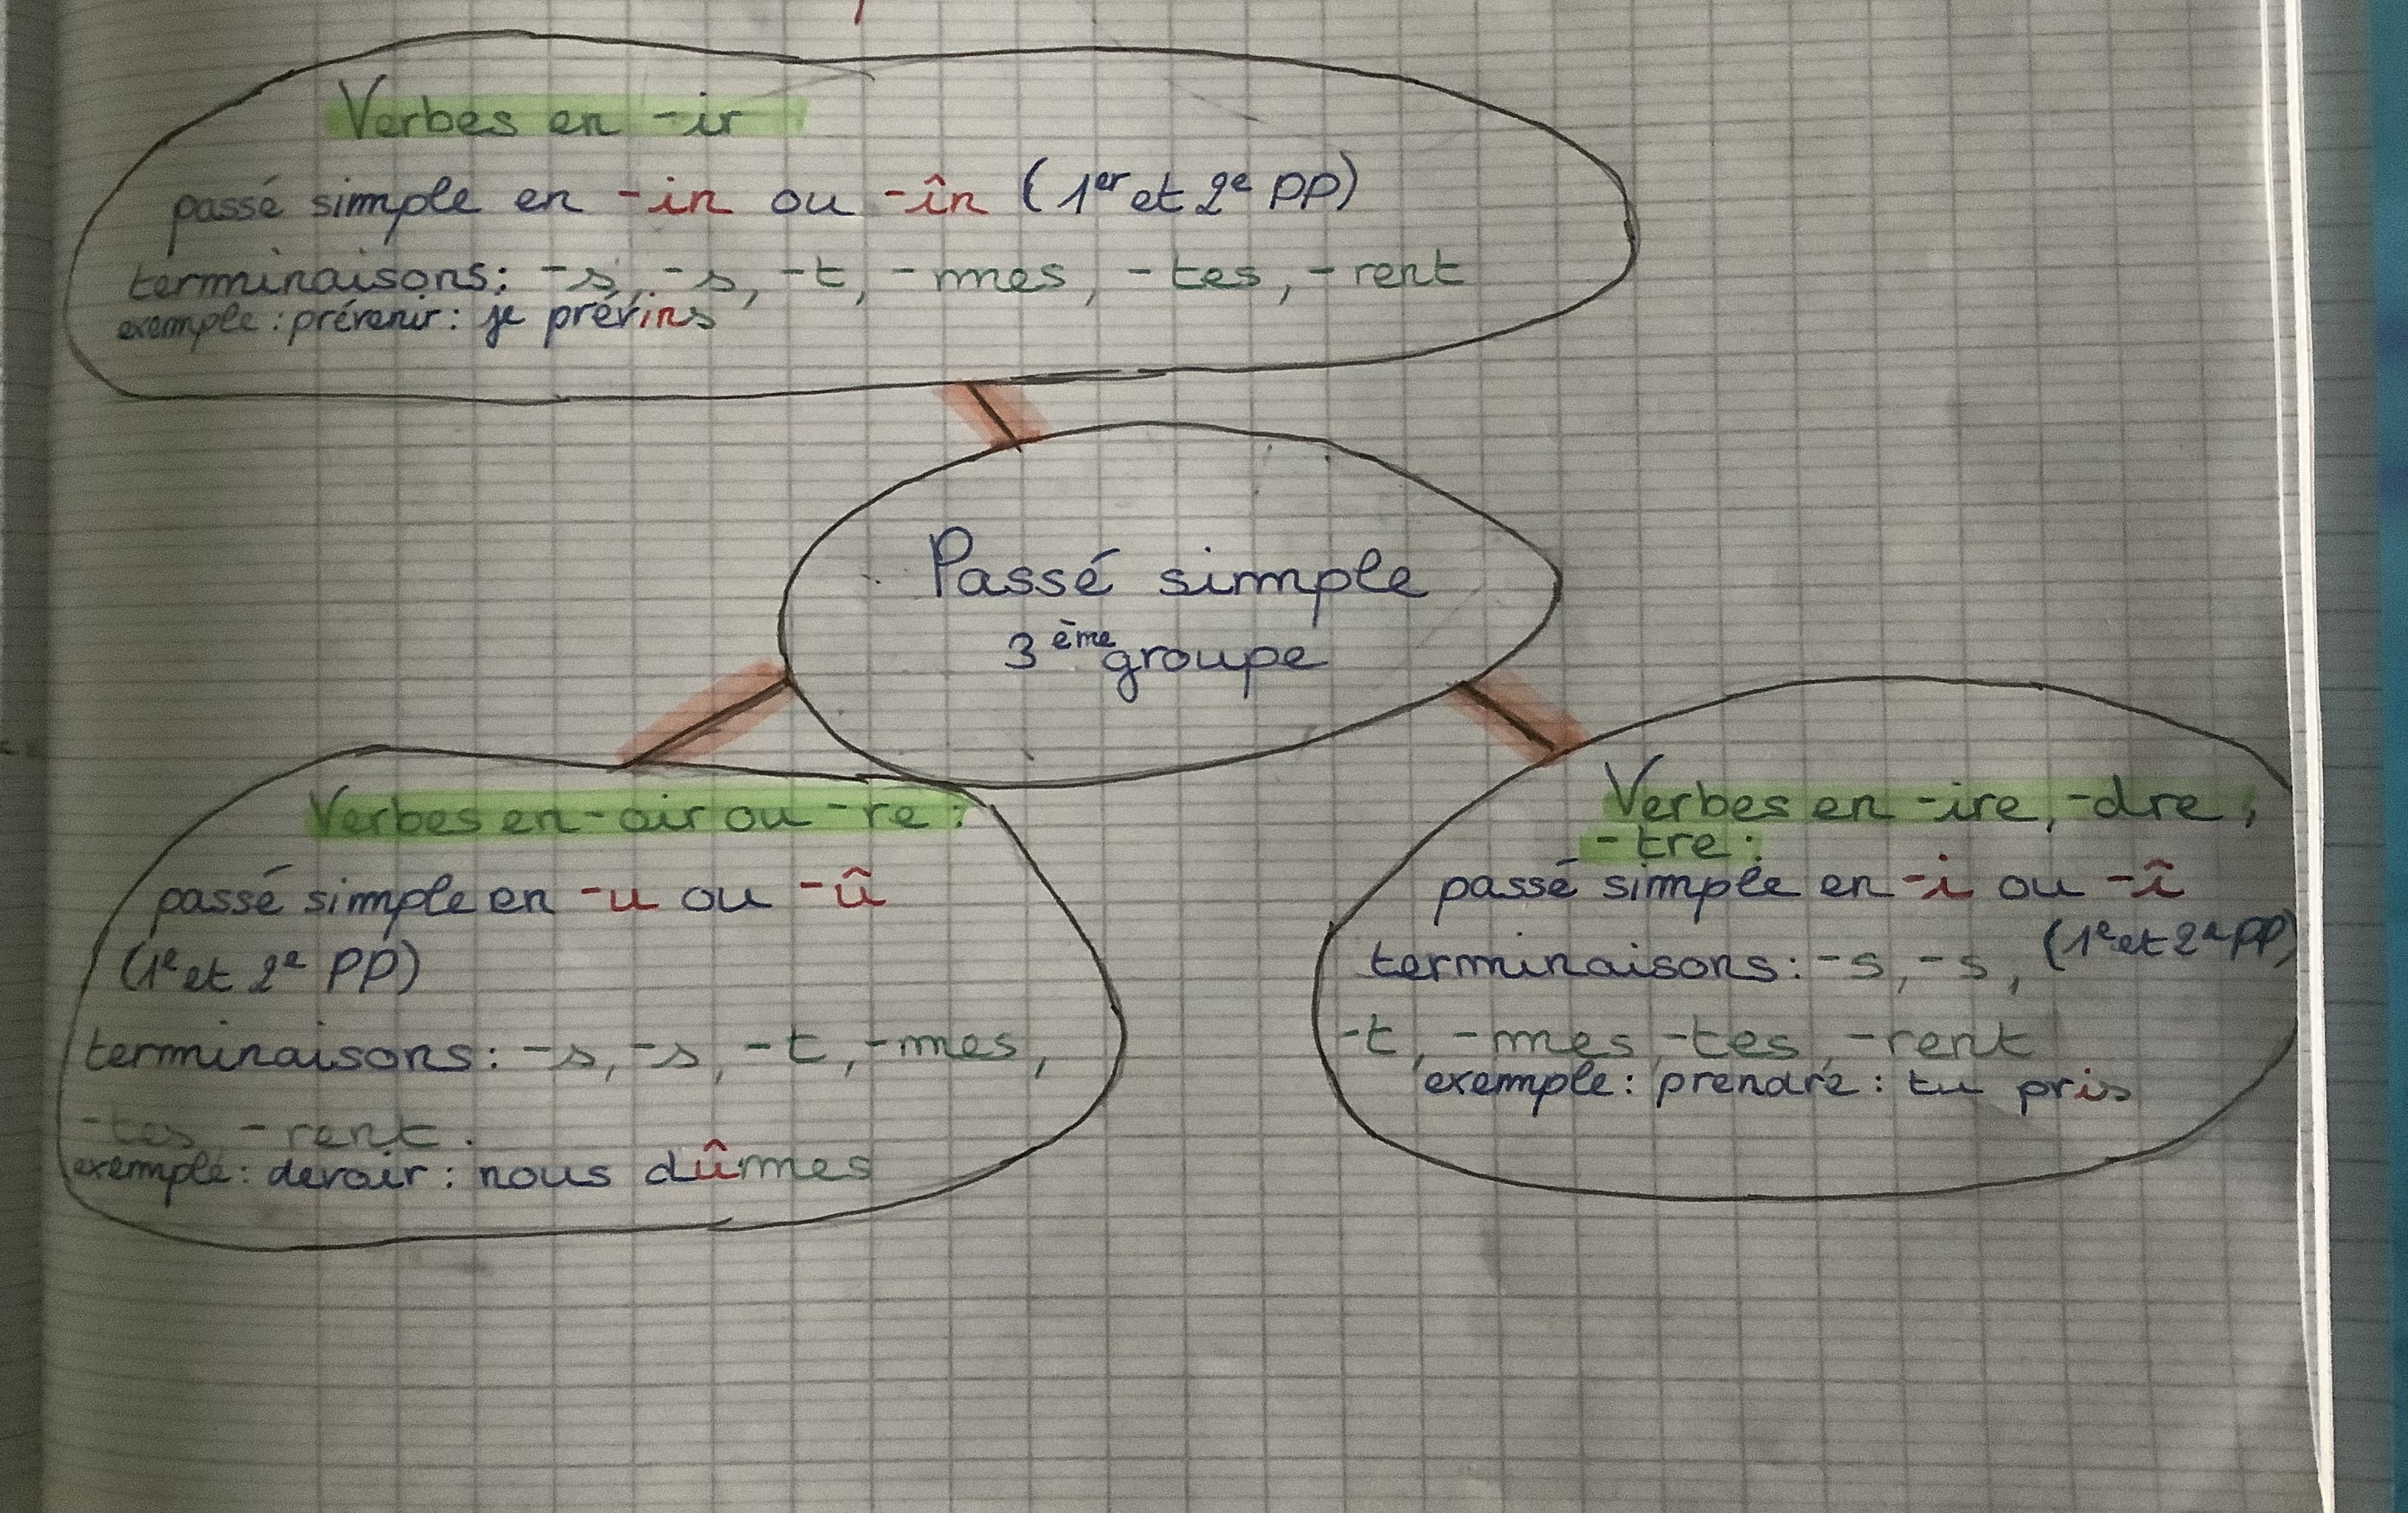 Verbes en -ir
passé simple en -in ou -în (1er et 2e PP)
terminaisons: -s, -s, -t, -mes, -tes, -rent
exemple : prévenir : je prévins
Passé simple
3ème groupe
Verbes en -oir ou -re :
passé simple en -u ou -û
(1e et 2e PP)
terminaisons : -s, -s, -t, -mes,
-tes, -rent.
exemple : devoir : nous dûmes
Verbes en -ire, -dre,
-tre :
passé simple en -i ou -î
(1e et 2e PP)
terminaisons : -s, -s,
-t, -mes, -tes, -rent
exemple : prendre : tu pris